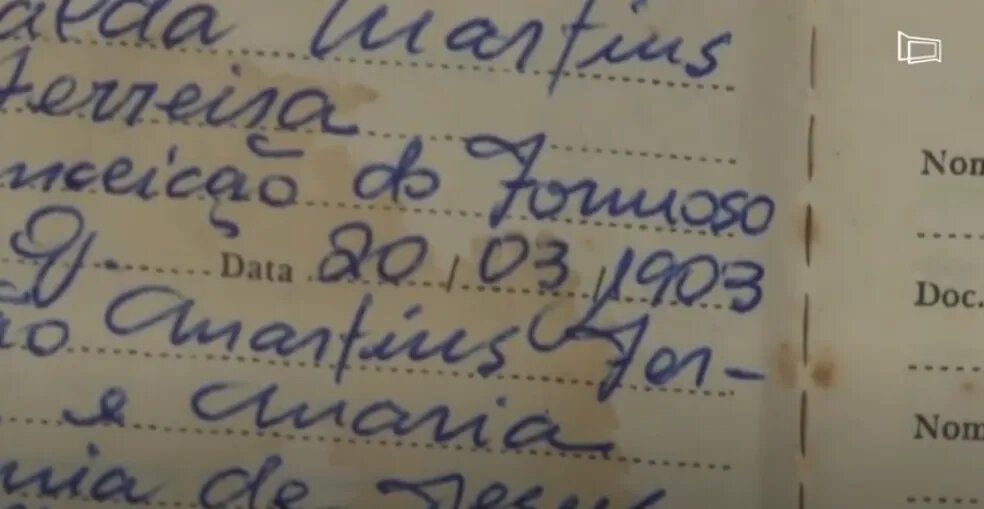 alda Martins
Ferreira
nceição do Formoso
g. Data 20/03/1903
ão Martins Fer-
e Maria
nia de Jesus
Nom
Doc.
Nom